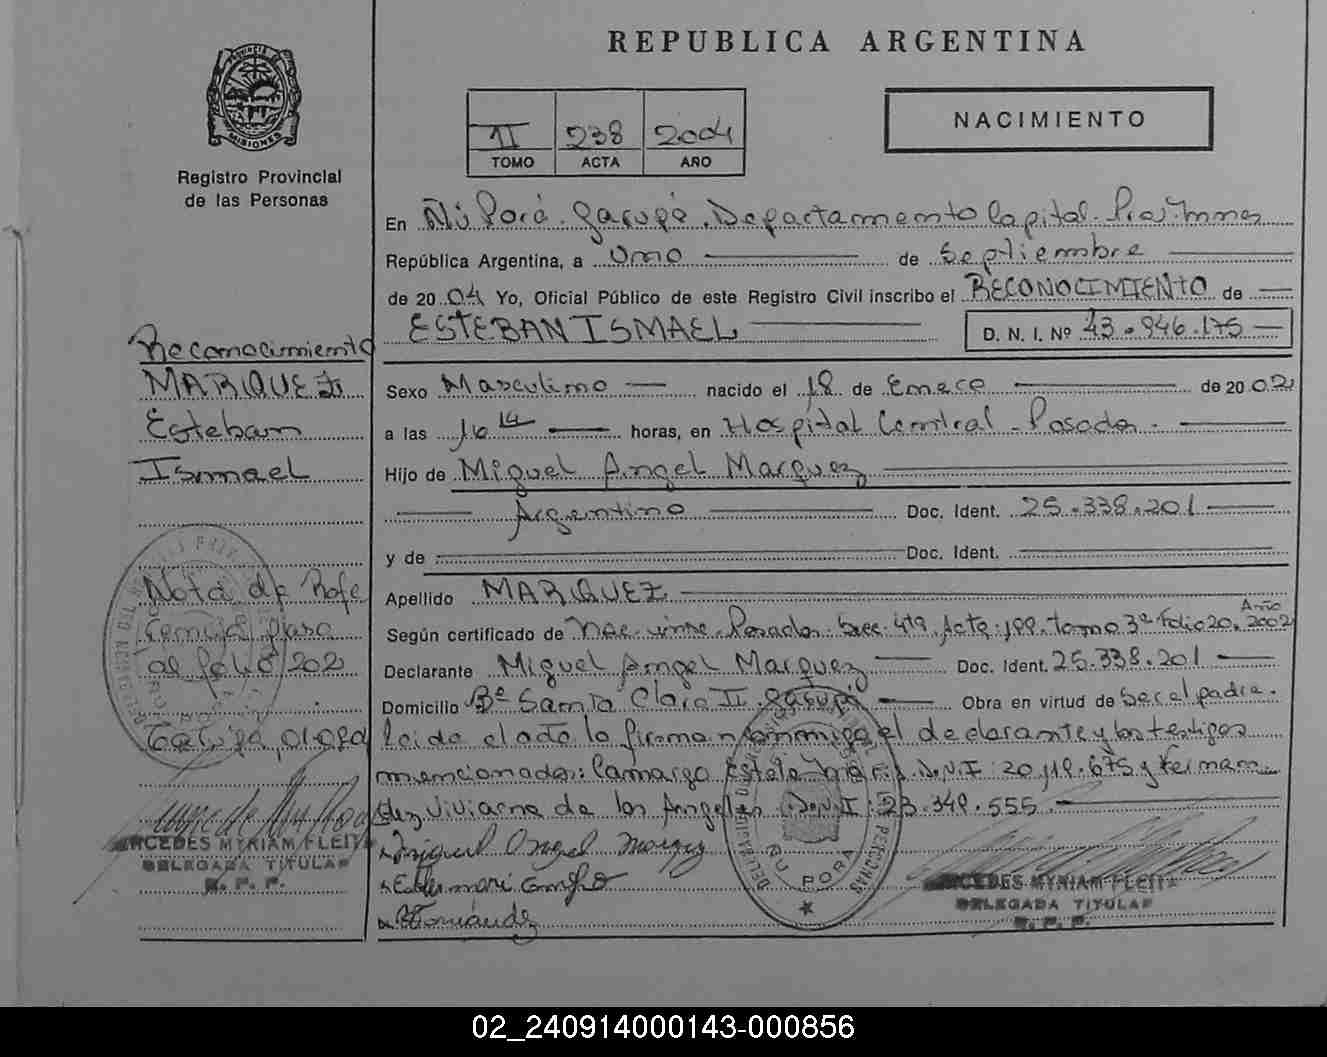 REPUBLICA ARGENTINA
PROVINCIA DE MISIONES
Registro Provincial
de las Personas
II 238 2004
TOMO ACTA AÑO
NACIMIENTO
En Ñú Porá. Garupá. Departamento Capital.
República Argentina, a Uno de Septiembre
de 2004 Yo, Oficial Público de este Registro Civil inscribo el RECONOCIMIENTO de
ESTEBAN ISMAEL D. N. I. Nº 43.946.175
Sexo Masculino nacido el 18 de Enero de 2002
a las 16 horas, en Hospital Central - Posadas.
Hijo de Miguel Angel Marquez
Argentino Doc. Ident. 25.338.201
y de Doc. Ident.
Apellido MARQUEZ
Según certificado de Posadas Secc. 4ta, Acta: tomo 3º Folio 20. Año 2002
Declarante Miguel Angel Marquez Doc. Ident. 25.338.201
Domicilio Bº Santa Clara II. Garupá Obra en virtud de Ser el padre.
Leida el acta la firma conmigo el declarante y los testigos
mencionados: Camargo Estela D.N.I: y Fernan
dez Viviana de los Angeles D.N.I: 23.349.555
Miguel Angel Marquez
Fernández
MERCEDES MYRIAM FLEITA
DELEGADA TITULAR
R. P. P.
Reconocimiento
MARQUEZ
Esteban
Ismael
Nota de Refe
rencia pasa
al folio 202
MERCEDES MYRIAM FLEITA
DELEGADA TITULAR
R. P. P.
ÑU PORA
02_240914000143-000856